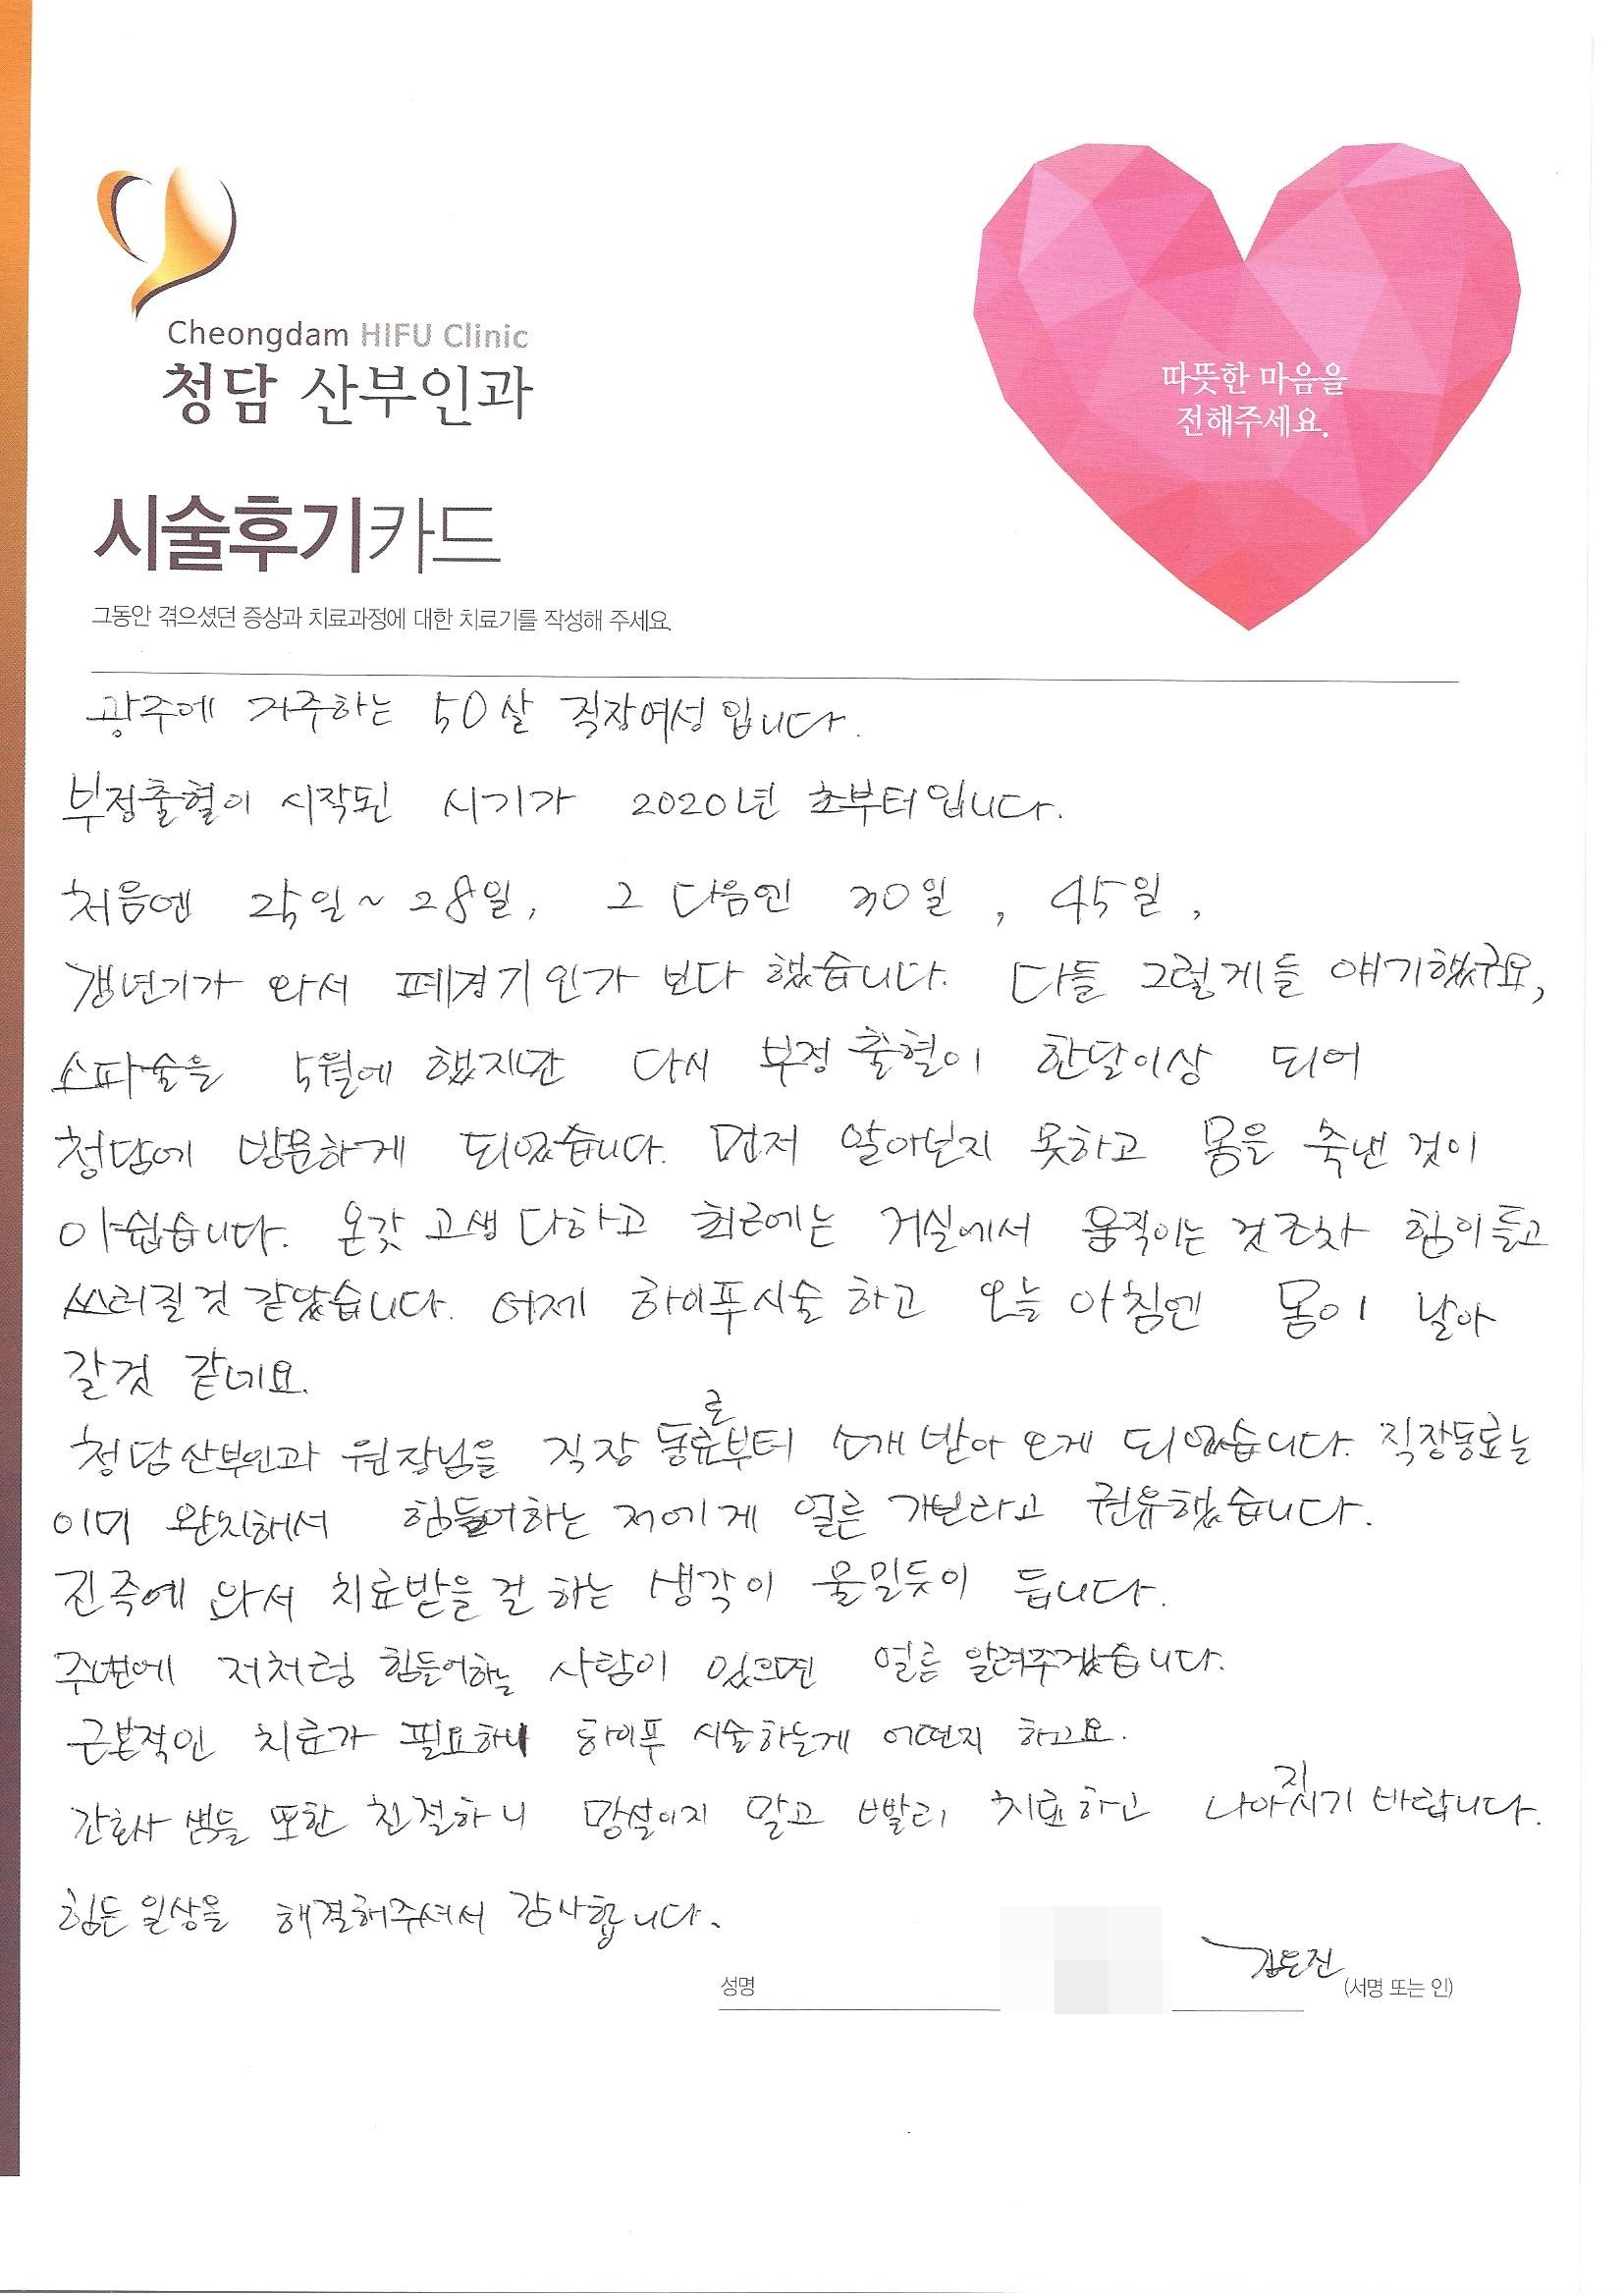 Cheongdam HIFU Clinic
청담 산부인과
따뜻한 마음을
전해주세요.
시술후기카드
그동안 겪으셨던 증상과 치료과정에 대한 치료기를 작성해 주세요.
광주에 거주하는 50살 직장여성입니다.
부정출혈이 시작된 시기가 2020년 초부터입니다.
처음엔 25일~28일, 그 다음엔 30일, 45일,
갱년기가 와서 폐경기인가 보다 했습니다. 다들 그렇게들 얘기했구요,
소파술을 5월에 했지만 다시 부정출혈이 한달이상 되어
청담에 방문하게 되었습니다. 먼저 알아보지 못하고 몸을 축낸 것이
아쉽습니다. 온갖 고생 다하고 최근에는 거실에서 움직이는 것조차 힘이들고
쓰러질것 같았습니다. 어제 하이푸시술 하고 오늘 아침엔 몸이 날아
갈것 같네요.
청담산부인과 원장님을 직장 동료로부터 소개 받아 오게 되었습니다. 직장동료는
이미 완치해서 힘들어하는 저에게 얼른 가보라고 권유했습니다.
진즉에 와서 치료받을걸 하는 생각이 물밀듯이 듭니다.
주변에 저처럼 힘들어하는 사람이 있으면 얼른 알려주겠습니다.
근본적인 치료가 필요하니 하이푸 시술하는게 어떤지 하고요.
간호사 쌤들 또한 친절하니 망설이지 말고 빨리 치료하고 나아지시기 바랍니다.
힘든 일상을 해결해주셔서 감사합니다.
성명 (서명 또는 인)